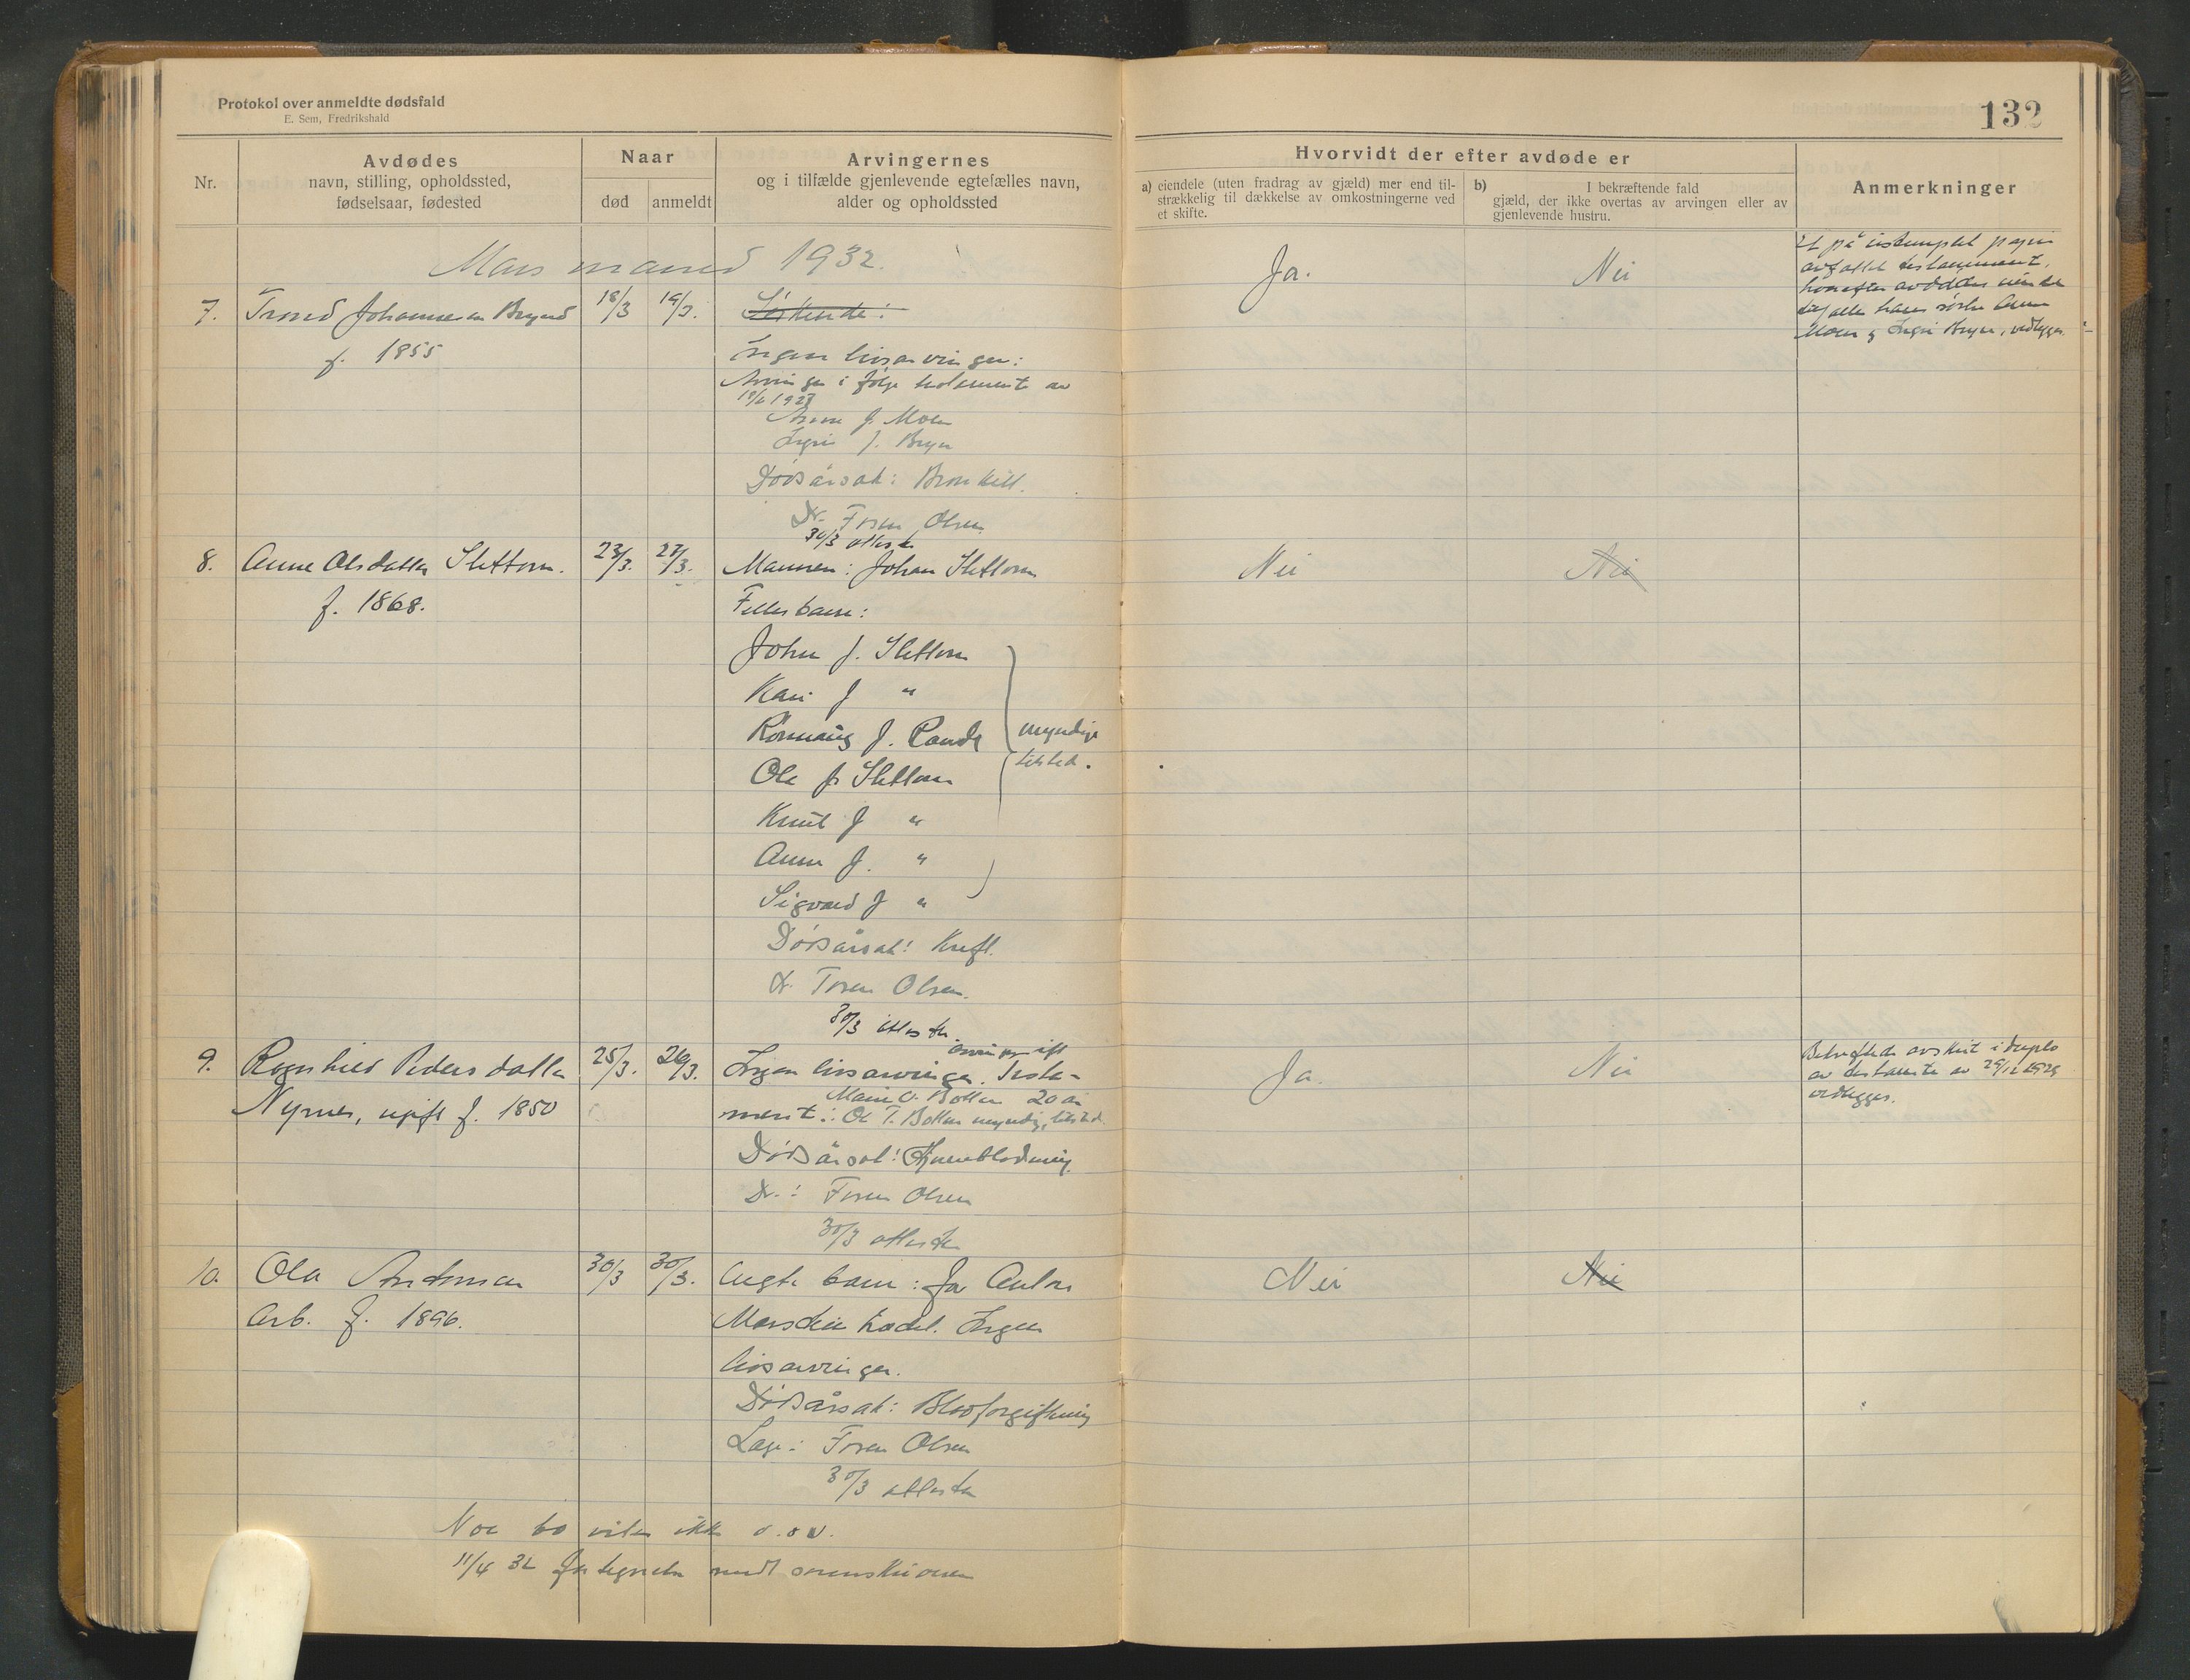 Protokol over anmeldte dødsfald
E. Sem, Fredrikshald
132
Nr.
Avdødes
navn, stilling, opholdssted,
fødselsaar, fødested
Naar
død
anmeldt
Arvingernes
og i tilfælde gjenlevende egtefælles navn,
alder og opholdssted
Hvorvidt der efter avdøde er
a) eiendele (uten fradrag av gjæld) mer end til-
strækkelig til dækkelse av omkostningerne ved
et skifte.
b) I bekræftende fald
gjæld, der ikke overtas av arvingen eller av
gjenlevende hustru.
Anmerkninger
Mars maaned 1932.
7. Trond Johannesen
f. 1855
18/3 19/3.
Søskende:
Ingen livsarvinger:
Arvinger i følge testament av
Anne J. Moen
Ingri J. Bryn
Dødsårsak: Bronkitt.
Dr. Fosen Olsen
30/3 attester
Ja. Nei
Et på ustemplet papir
avfattet testamente,
hvorefter avdødes eiendeler
tilfaller hans søstre Anne
Moen og Ingri Bryn, vedlegges.
8. Anne Olsdatter Slettom.
f. 1868.
23/3. 27/3.
Mannen: Johan Slettom
Fellesbarn:
John J. Slettom
Kari J "
J. Rand
Ola J. Slettom
Knut J "
Anne J. "
Sigvard J "
myndige
tilsted.
Dødsårsak: Kreft.
Dr. Fosen Olsen.
30/3 attester
Nei Nei
9. Ragnhild Pedersdatter
Nyrnes, ugift f. 1850
25/3. 26/3.
Ingen livsarvinger. arvinger ift
Testa-
ment: Ole T. myndig, tilsted.
20 år
Dødsårsak: Hjerneblødning.
Dr.: Fosen Olsen
30/3 attester
Ja. Nei
Bekreftede avskrift i duplo
av testamente av 29/12 1929
vedlegges.
10. Ola Andersen
Arb. f. 1896.
30/3 30/3.
Ingen
livsarvinger.
Dødsårsak: Blodforgiftning
Læge: Fosen Olsen
30/3 attester
Nei Nei
Noe bo vites ikke
11/4 32 sorenskriveren